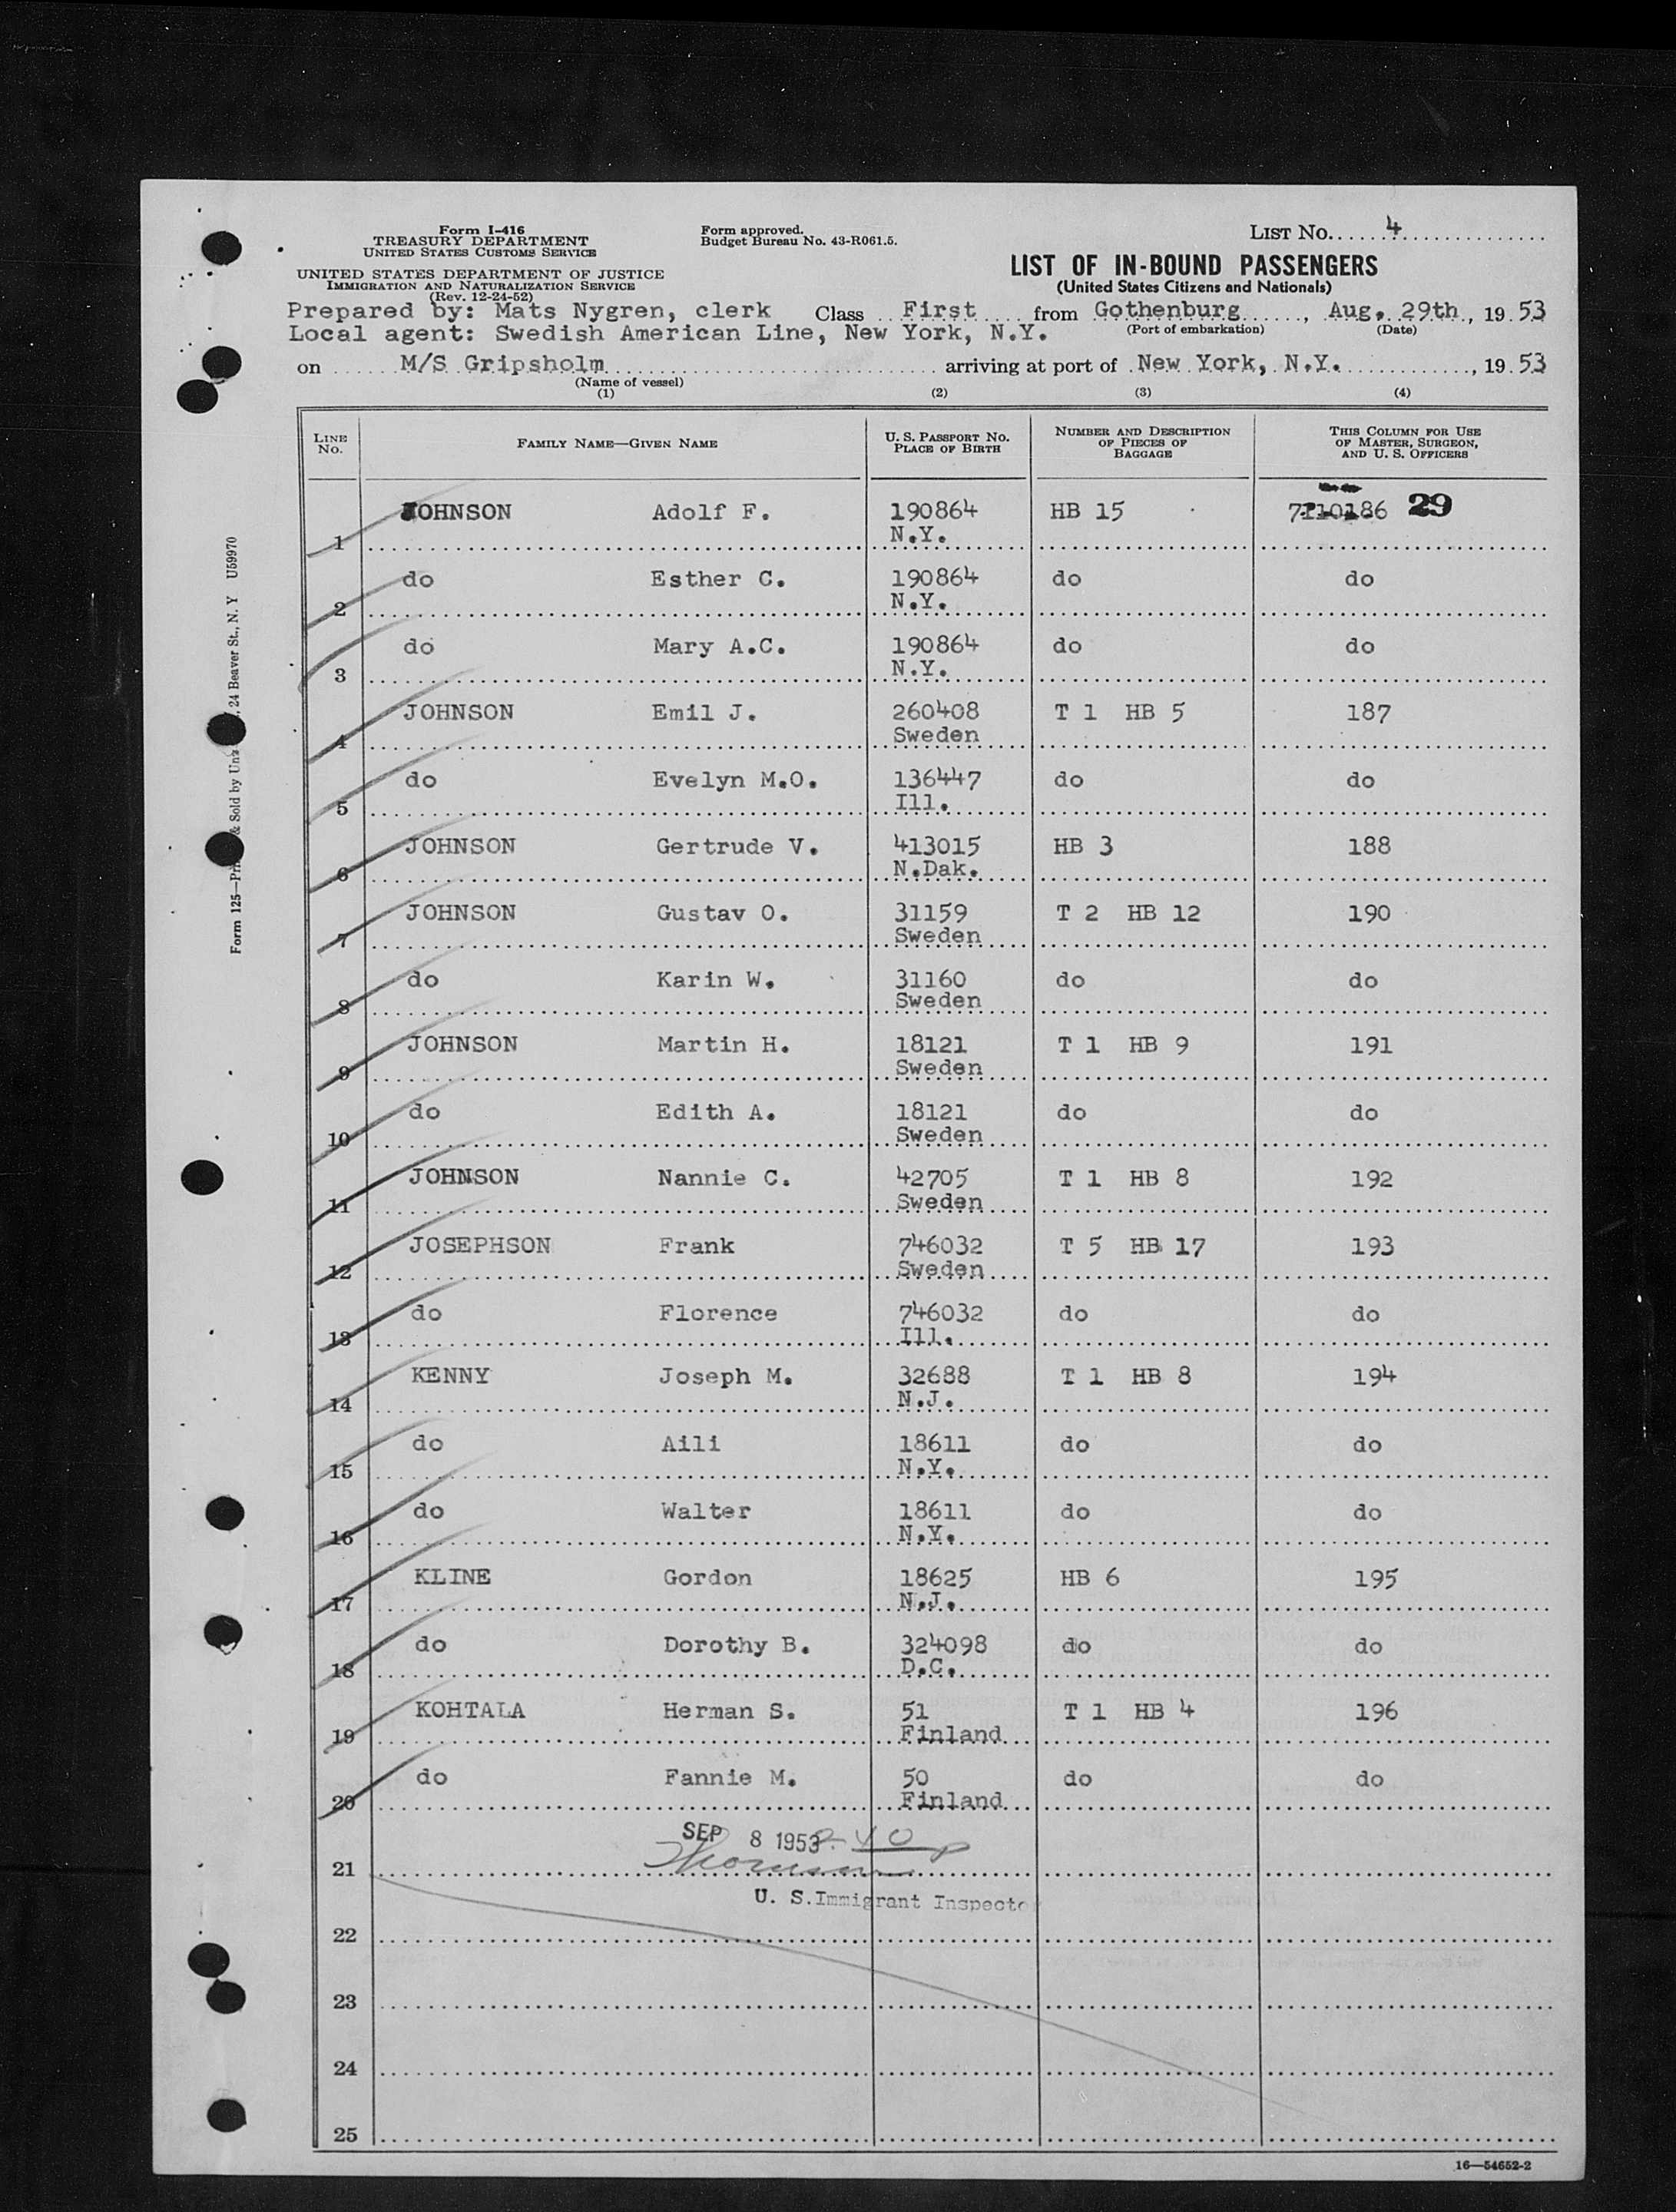 Form I-416
TREASURY DEPARTMENT
UNITED STATES CUSTOMS SERVICE
UNITED STATES DEPARTMENT OF JUSTICE
IMMIGRATION AND NATURALIZATION SERVICE
(Rev. 12-24-52)
Form approved.
Budget Bureau No. 43-R061.5.
LIST No. 4
LIST OF IN-BOUND PASSENGERS
(United States Citizens and Nationals)
Prepared by: Mats Nygren, clerk Class First from Gothenburg, Aug. 29th, 19 53
(Port of embarkation) (Date)
Local agent: Swedish American Line, New York, N.Y.
on M/S Gripsholm arriving at port of New York, N.Y., 19 53
(Name of vessel)
(1) (2) (3) (4)
LINE No. FAMILY NAME—GIVEN NAME U. S. PASSPORT No. PLACE OF BIRTH NUMBER AND DESCRIPTION OF PIECES OF BAGGAGE THIS COLUMN FOR USE OF MASTER, SURGEON, AND U. S. OFFICERS
1 JOHNSON Adolf F. 190864 HB 15 186 29
N.Y.
2 do Esther C. 190864 do do
N.Y.
3 do Mary A.C. 190864 do do
N.Y.
4 JOHNSON Emil J. 260408 T 1 HB 5 187
Sweden
5 do Evelyn M.O. 136447 do do
Ill.
6 JOHNSON Gertrude V. 413015 HB 3 188
N.Dak.
7 JOHNSON Gustav O. 31159 T 2 HB 12 190
Sweden
8 do Karin W. 31160 do do
Sweden
9 JOHNSON Martin H. 18121 T 1 HB 9 191
Sweden
10 do Edith A. 18121 do do
Sweden
11 JOHNSON Nannie C. 42705 T 1 HB 8 192
Sweden
12 JOSEPHSON Frank 746032 T 5 HB 17 193
Sweden
13 do Florence 746032 do do
Ill.
14 KENNY Joseph M. 32688 T 1 HB 8 194
N.J.
15 do Aili 18611 do do
N.Y.
16 do Walter 18611 do do
N.Y.
17 KLINE Gordon 18625 HB 6 195
N.J.
18 do Dorothy B. 324098 do do
D.C.
19 KOHTALA Herman S. 51 T 1 HB 4 196
Finland
20 do Fannie M. 50 do do
Finland
SEP 8 1953
21
U. S. Immigrant Inspector
22
23
24
25
16—54652-2
Form 125— & Sold by 24 Beaver St., N. Y U59970